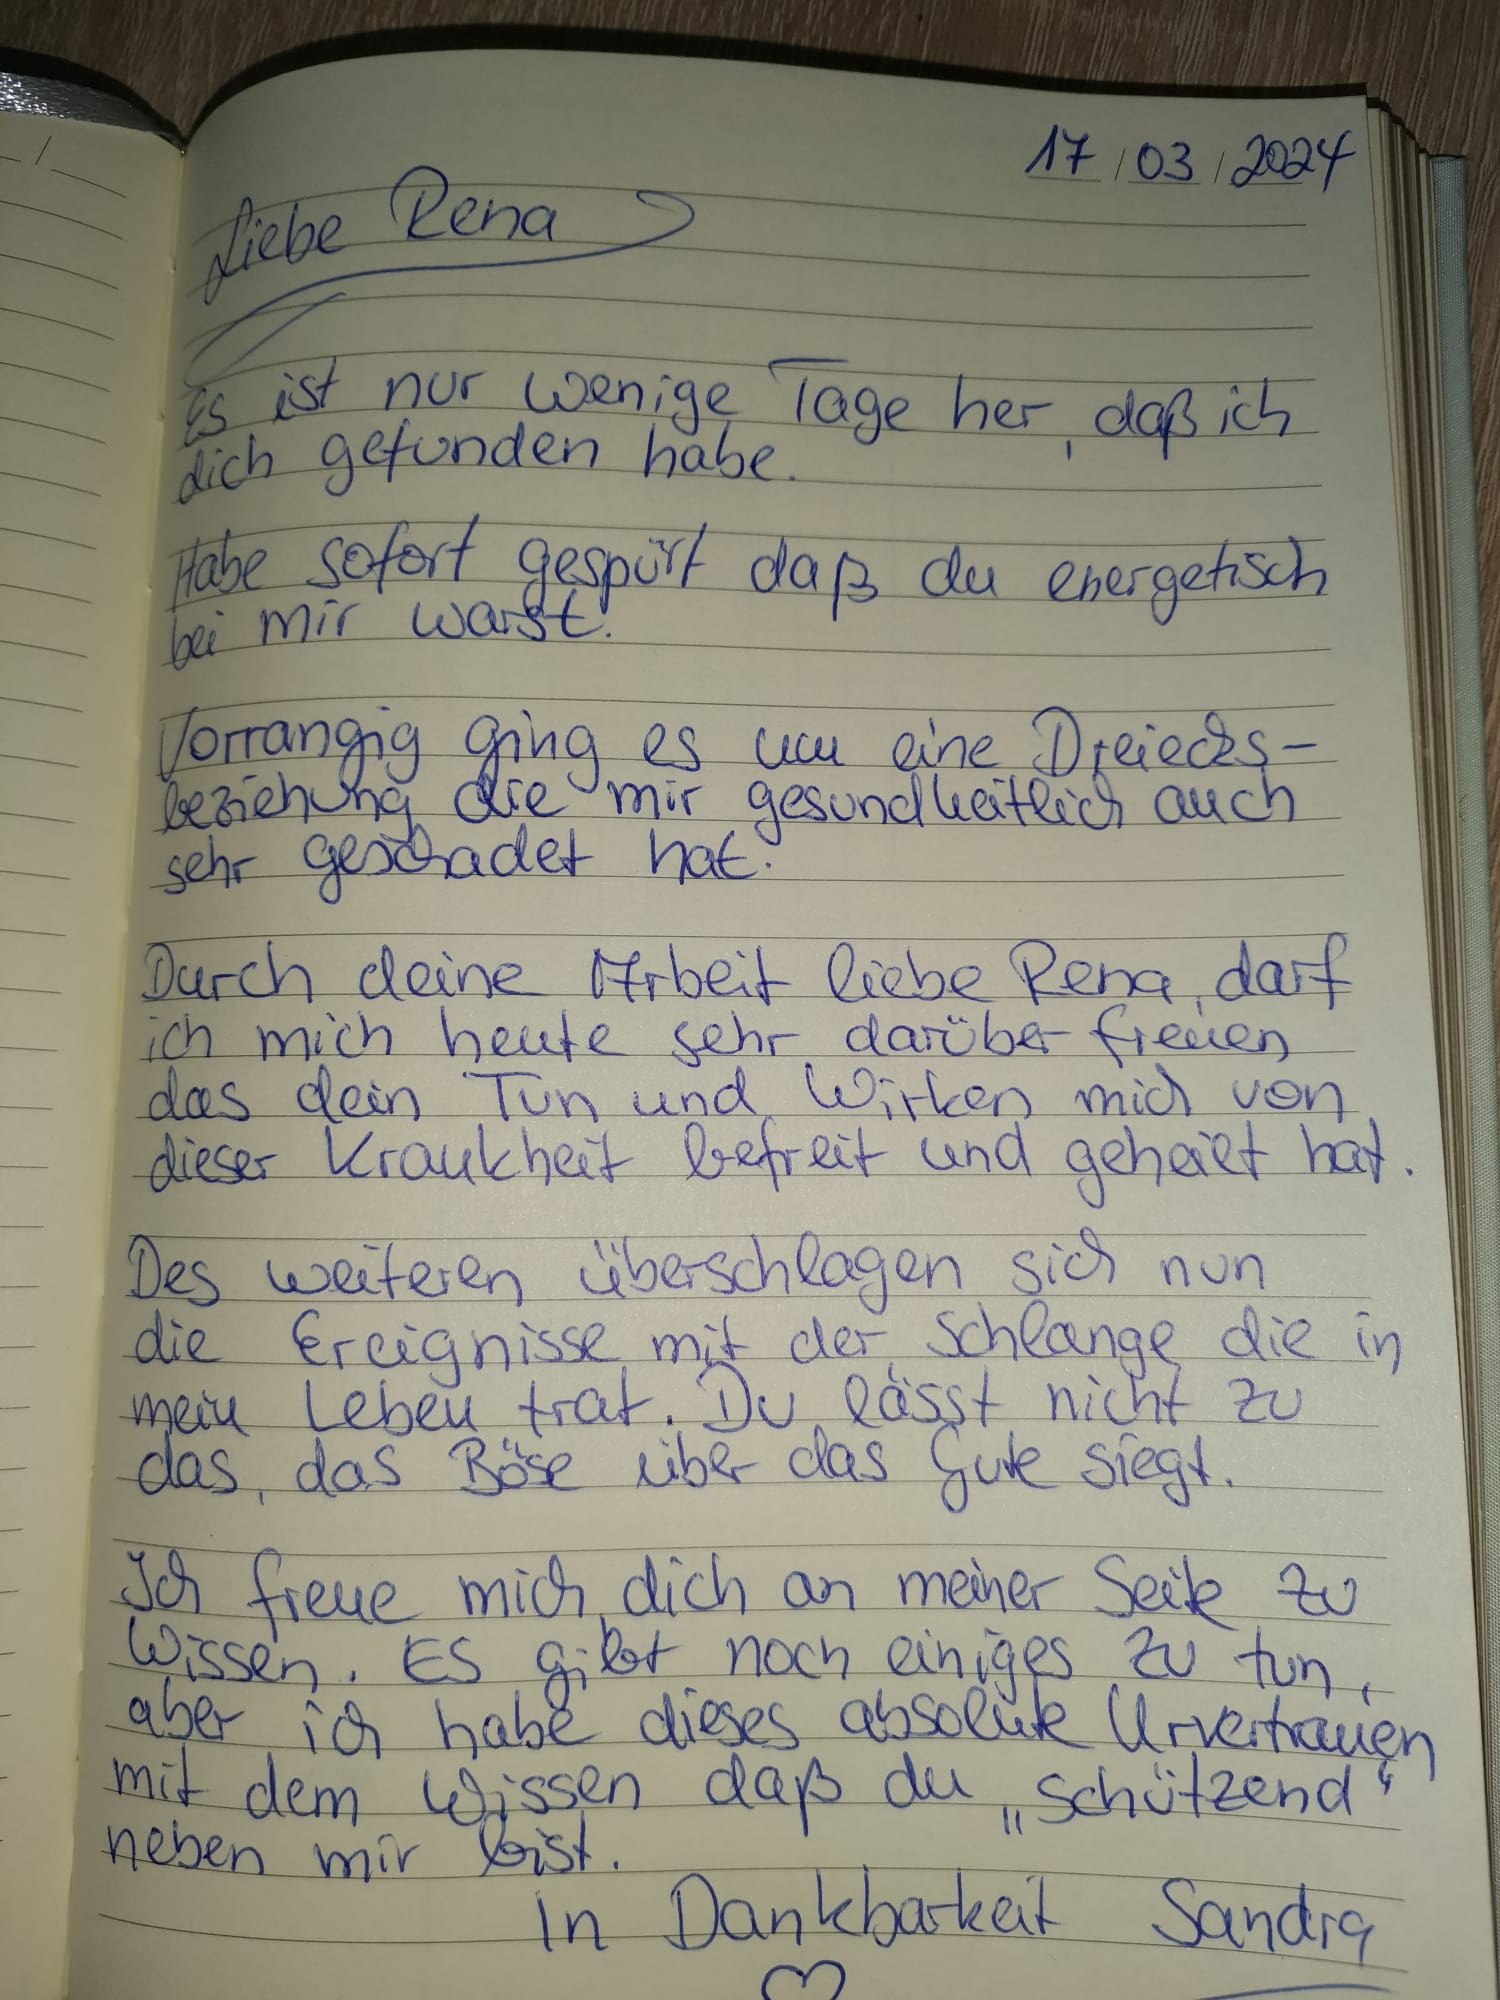 17/03/2024
Liebe Rena
Es ist nur wenige Tage her, daß ich
dich gefunden habe.
Habe sofort gespürt daß du energetisch
bei mir warst.
Vorrangig ging es um eine Dreiecks-
beziehung die mir gesundheitlich auch
sehr geschadet hat.
Durch deine Arbeit liebe Rena, darf
ich mich heute sehr darüber freuen
das dein Tun und Wirken mich von
dieser Krankheit befreit und geheilt hat.
Des weiteren überschlagen sich nun
die Ereignisse mit der Schlange die in
mein Leben trat. Du lässt nicht zu
das, das Böse über das Gute siegt.
Ich freue mich dich an meiner Seite zu
Wissen. Es gibt noch einiges zu tun,
aber ich habe dieses absolute Urvertrauen
mit dem Wissen daß du „schützend“
neben mir bist.
In Dankbarkeit Sandra